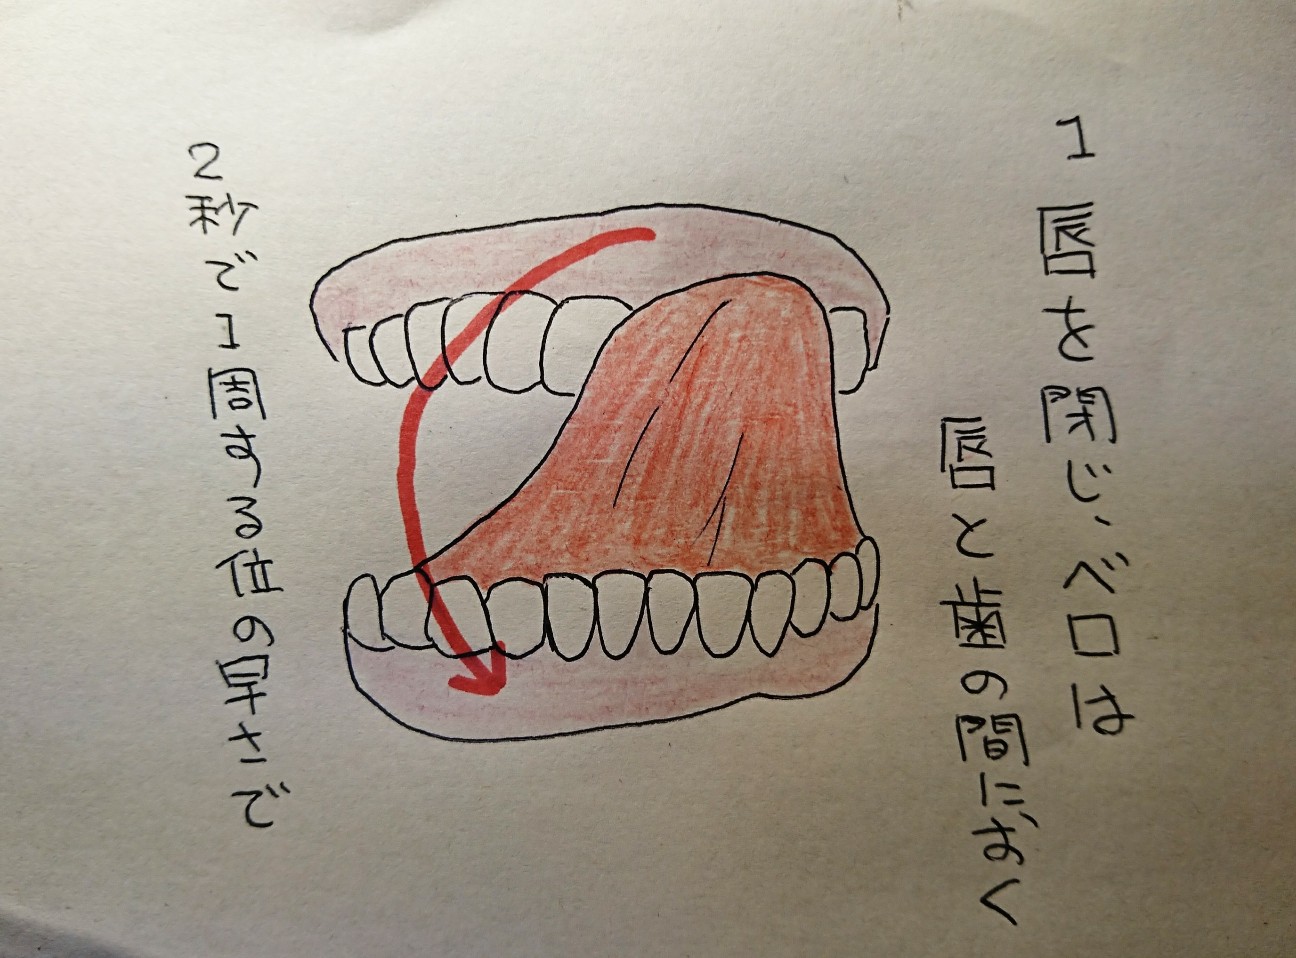 1 唇を閉じ、ベロは
唇と歯の間におく
2秒で1周する位の早さで